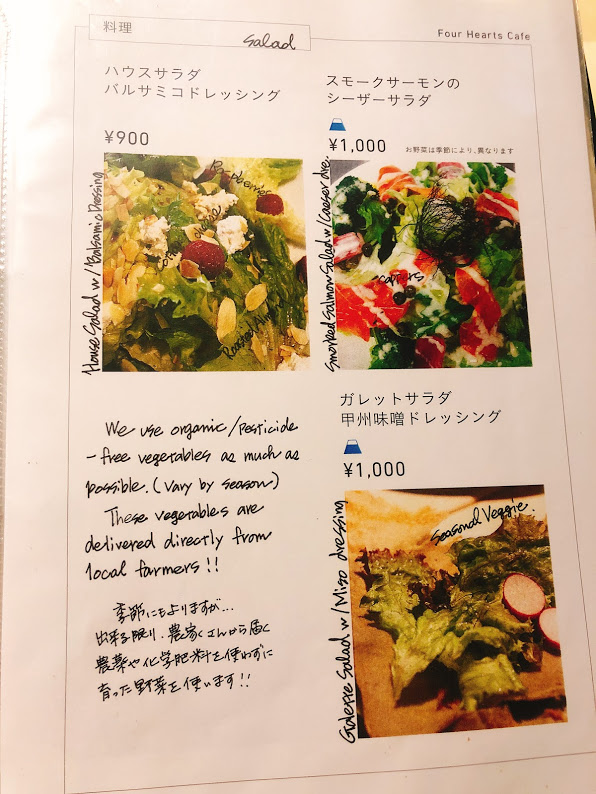 料理
Salad
Four Hearts Cafe
ハウスサラダ
バルサミコドレッシング
¥900
House Salad w/Balsamic Dressing
Raspberries
Roasted
スモークサーモンの
シーザーサラダ
¥1,000
お野菜は季節により、異なります
Smorked Salmon Salad w/Caeser dre.
We use organic/pesticide
-free vegetables as much as
possible. (vary by season)
These vegetables are
delivered directly from
local farmers!!
季節にもよりますが...
出来る限り、農家さんから届く
農薬や化学肥料を使わずに
育った野菜を使います!!
ガレットサラダ
甲州味噌ドレッシング
¥1,000
Galette Salad w/Miso dressing
Seasonal Veggie.